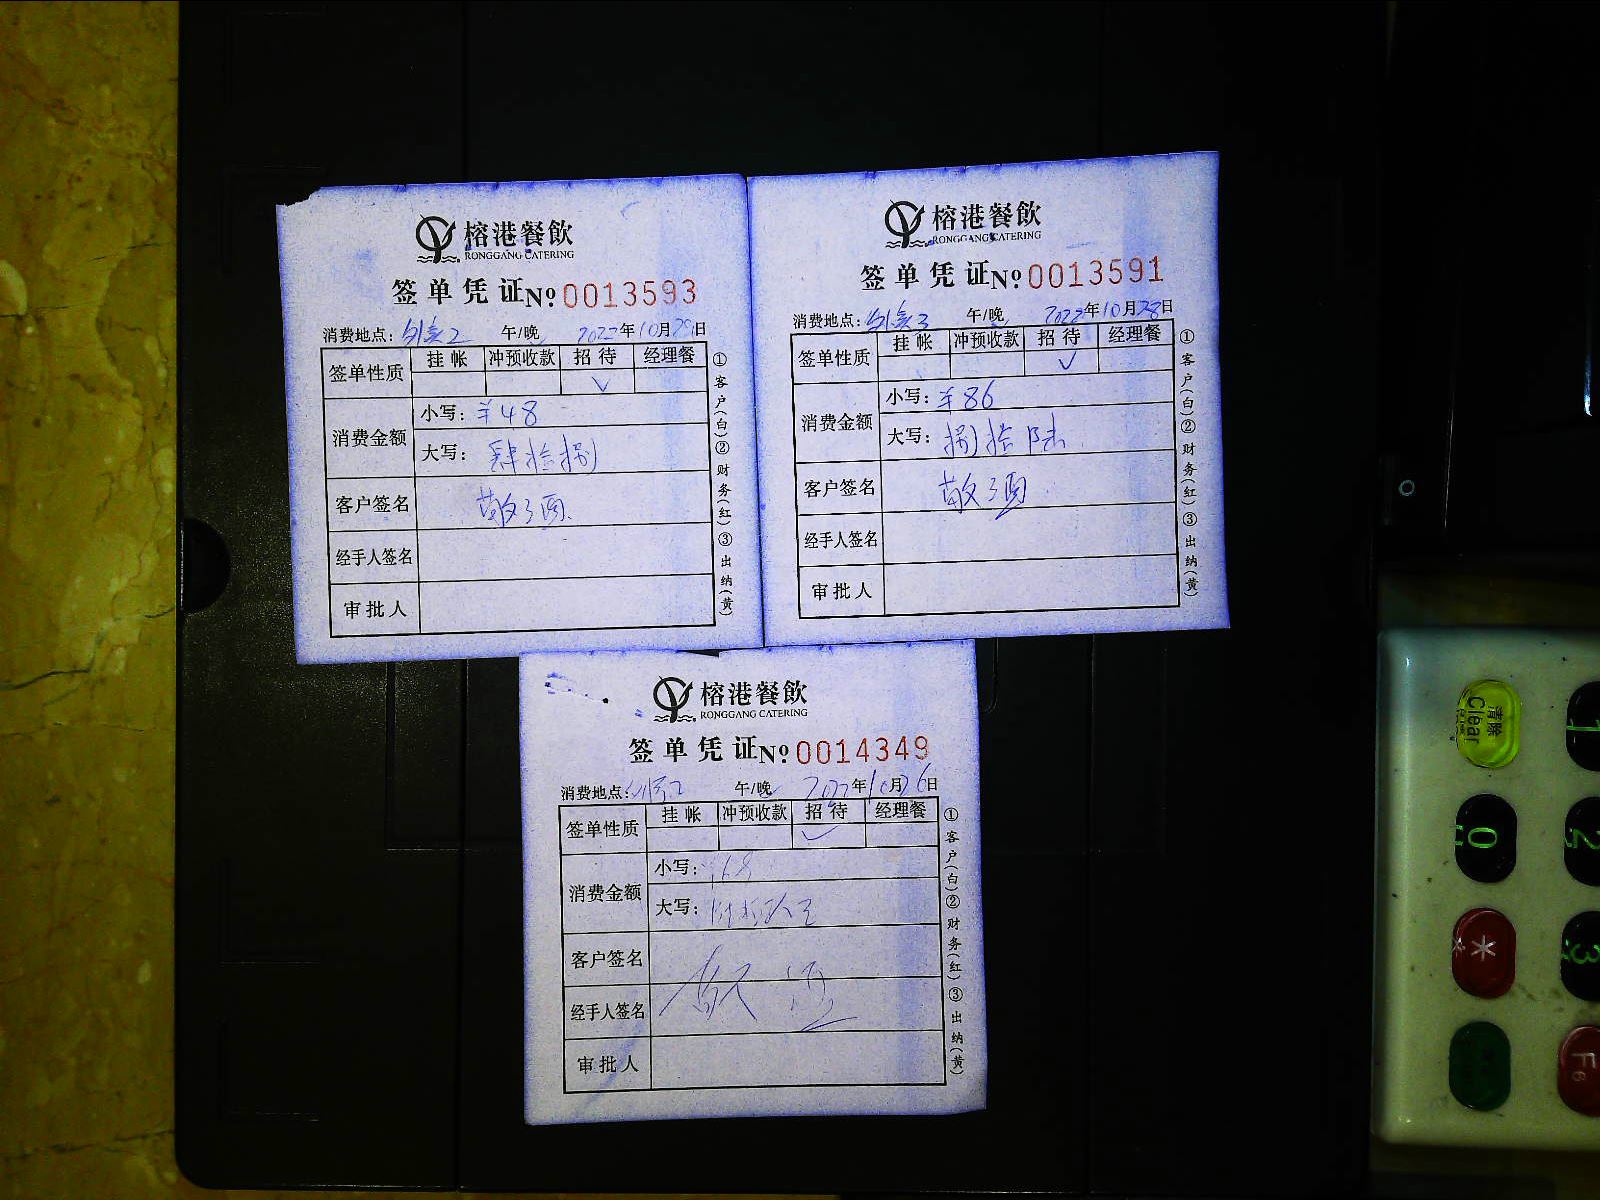 榕港餐飲
RONGGANG CATERING
签单凭证№0013593
消费地点: 午/晚 2022年10月29日
签单性质 挂帐 冲预收款 招待 经理餐
✓
消费金额 小写: ¥48
大写: 肆拾捌
客户签名 敬酒
经手人签名
审批人
①客户(白)②财务(红)③出纳(黄)
榕港餐飲
RONGGANG CATERING
签单凭证№0013591
消费地点: 午/晚 2022年10月28日
签单性质 挂帐 冲预收款 招待 经理餐
✓
消费金额 小写: ¥86
大写: 捌拾陆
客户签名 敬酒
经手人签名
审批人
①客户(白)②财务(红)③出纳(黄)
榕港餐飲
RONGGANG CATERING
签单凭证№0014349
消费地点: 午/晚 2022年10月26日
签单性质 挂帐 冲预收款 招待 经理餐
✓
消费金额 小写:
大写:
客户签名
经手人签名
审批人
①客户(白)②财务(红)③出纳(黄)
清除
Clear
1
0
2
*
3
F6